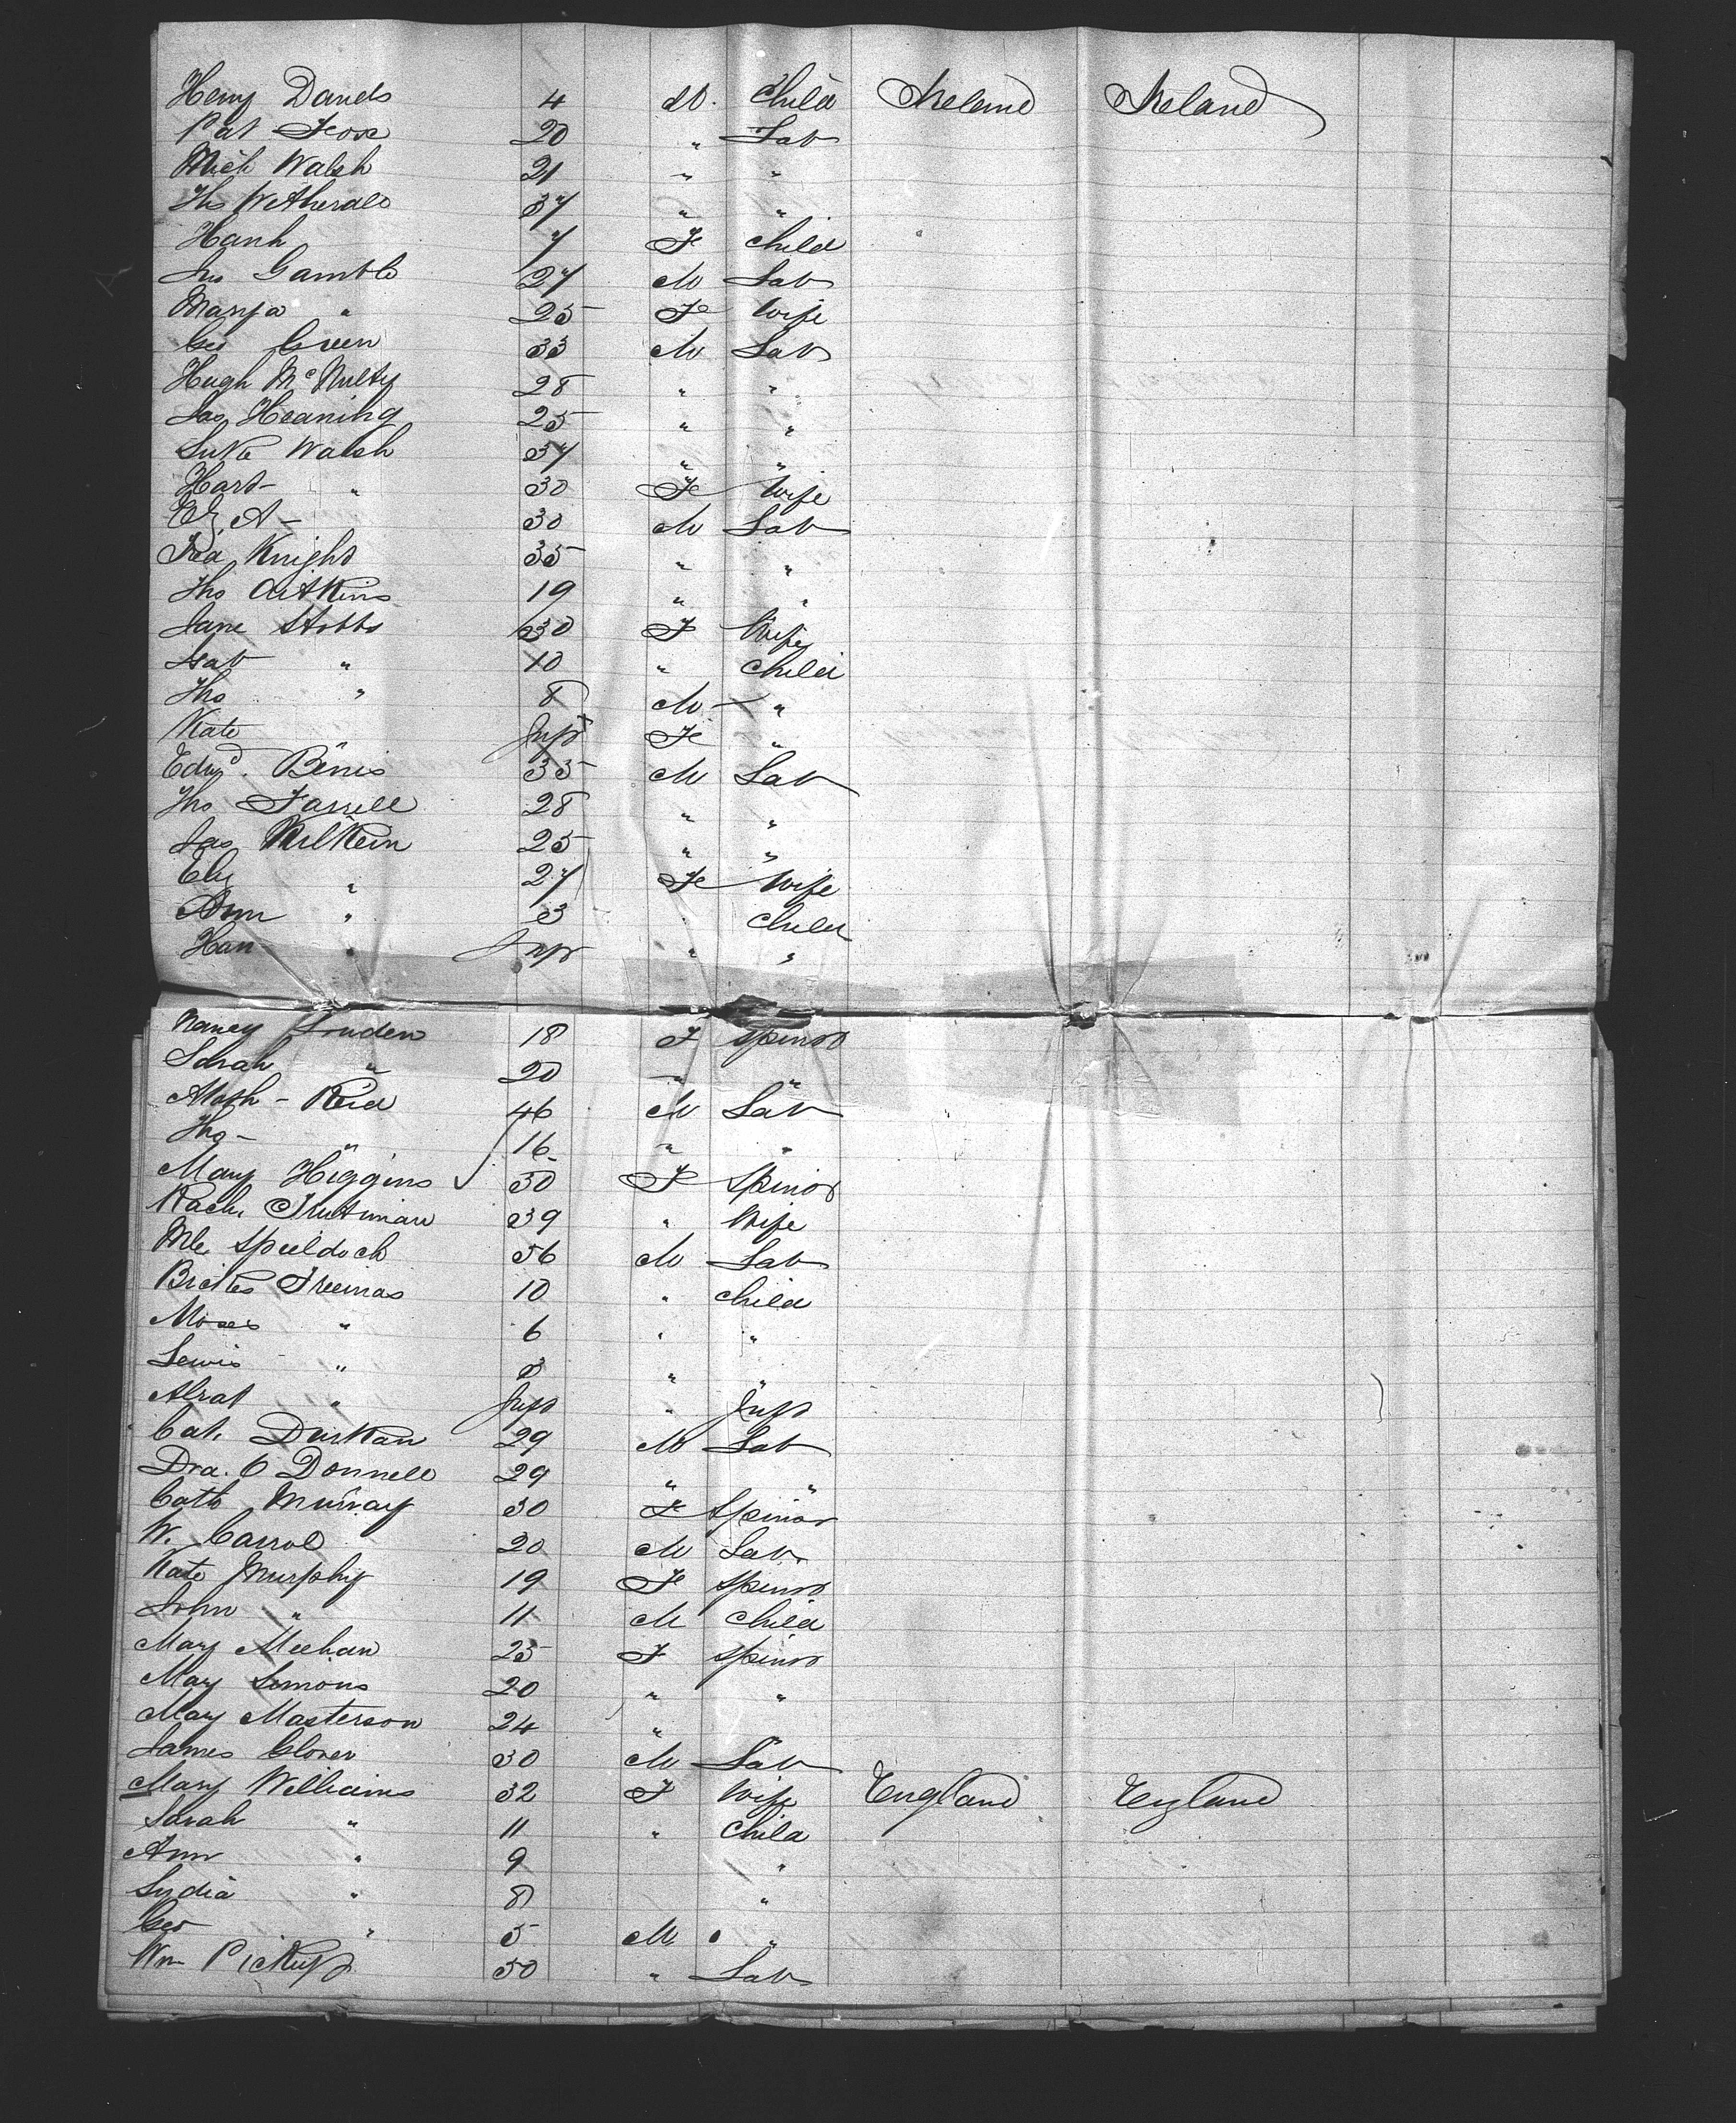 Heny Daneds 4 M. Child Ireland Ireland
Pat 20 " Lab
Mich Walsh 21 " "
Ths Wetherald 37 " "
Hanh 7 F Child
Jno Gamble 27 M Lab
Marya " 25 F Wife
Geo Green 33 M Lab
Hugh McNulty 28 " "
Jas Heaning 25 " "
Luke Walsh 37 " "
Hart- " 30 F Wife
30 M Lab
Knight 35 " "
Tho Aitkins 19 " "
Jane Stobbs 30 F Wife
Isab " 10 " Child
Tho " 8 M "
Kate Inft F "
Edwd. Binis 35 M Lab
Tho Farrell 28 " "
Jas Milkein 25 " "
Eliz " 27 F Wife
Ann " 3 Child
Han " Inft " "
Nancy Linden 18 F Spinst
Sarah " 20 " "
Math - Reid 46 M Lab
Tho - " 16 " "
Mary Higgins 30 F Spinst
Rach. 39 " Wife
Spieldoch 56 M Lab
10 " Child
Moses " 6 " "
Lewis " 3 " "
" Inft " Inft
Cat. Durkan 29 M Lab
O Donnell 29 " "
Cath Murray 30 F Spinst
W. Carrol 20 M Lab
Kate Murphy 19 F Spinst
John " 11 M Child
Mary Meehan 25 F Spinst
Mary Simons 20 " "
Mary Masterson 24 " "
James Glover 30 M Lab
Mary Williams 32 F Wife England England
Sarah " 11 " Child
Ann " 9 "
Lydia " 8 "
Geo " 5 M "
Wm Pickup 50 " Lab